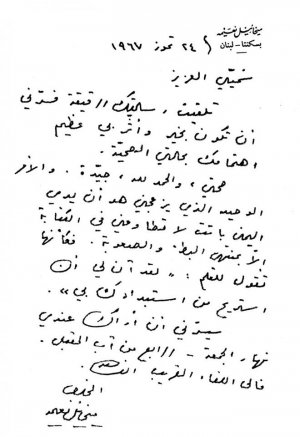 ميخائيل نعيمه
بسكنتا - لبنان
٢٤ تموز ١٩٦٧
سميّي العزيز
تلقيت رسالتك الرقيقة فسرّني
أن تكون بخير وأثّر بي عظيم
اهتمامك بحالتي الصحيّة.
صحتي، والحمد لله، جيّدة. والأمر
الوحيد الذي يزعجني هو أن يدي
اليمنى باتت لا تطاوعني في الكتابة
إلّا بمنتهى البطء والصعوبة. فكأنها
تقول للقلم: "لقد آن لي أن
استريح من استبدادك بي".
يسرّني أن أراك عندي
نهار الجمعة - الرابع من آب المقبل.
فإلى اللقاء القريب
المخلص
ميخائيل نعيمه